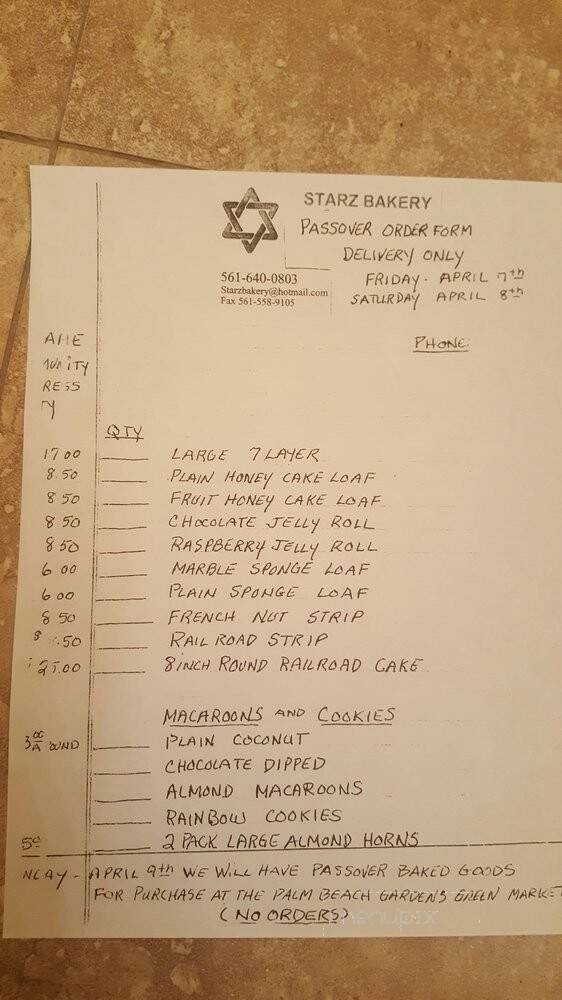 STARZ BAKERY
PASSOVER ORDER FORM
DELIVERY ONLY
FRIDAY - APRIL 7th
SATURDAY APRIL 8th
561-640-0803
Starzbakery@hotmail.com
Fax 561-558-9105
PHONE:
RESS
QTY
17 00 LARGE 7 LAYER
8.50 PLAIN HONEY CAKE LOAF
8 50 FRUIT HONEY CAKE LOAF
8 50 CHOCOLATE JELLY ROLL
8 50 RASPBERRY JELLY ROLL
6 00 MARBLE SPONGE LOAF
6 00 PLAIN SPONGE LOAF
8 50 FRENCH NUT STRIP
.50 RAIL ROAD STRIP
25.00 8 INCH ROUND RAILROAD CAKE
MACAROONS AND COOKIES
PLAIN COCONUT
CHOCOLATE DIPPED
ALMOND MACAROONS
RAINBOW COOKIES
2 PACK LARGE ALMOND HORNS
APRIL 9th WE WILL HAVE PASSOVER BAKED GOODS
FOR PURCHASE AT THE PALM BEACH GARDENS GREEN MARKET
(NO ORDERS)
menupix